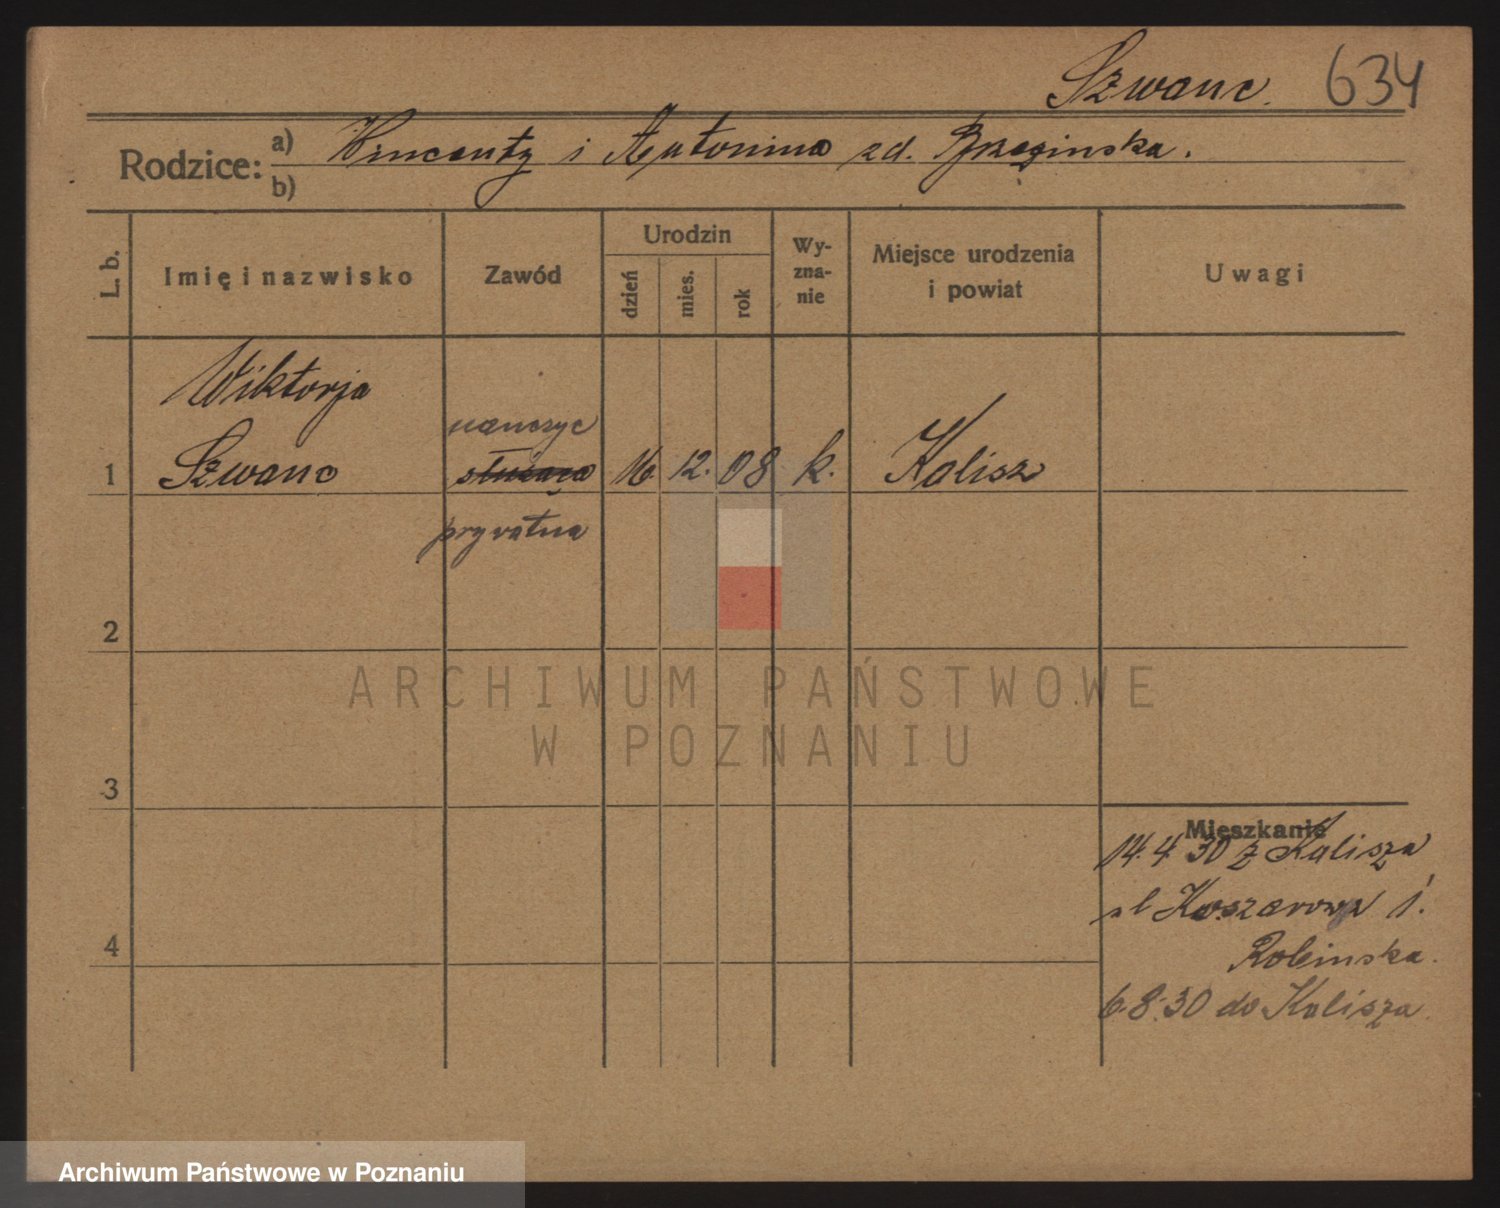 Szwanc. 634
Rodzice: a) Wincenty i Antonina zd. Brzezinska.
b)
L. b.
Imię i nazwisko
Zawód
Urodzin
dzień
mies.
rok
Wy-
zna-
nie
Miejsce urodzenia
i powiat
Uwagi
Wiktorja
nauczyc
1 Szwanc służąca 16. 12. 08 k. Kalisz
prywatna
2
3
4
ARCHIWUM PAŃSTWOWE
W POZNANIU
Mieszkanie
14. 4 30 z Kalisza
ul Koszarowa 1.
Robinska.
6.8.30 do Kalisza.
Archiwum Państwowe w Poznaniu